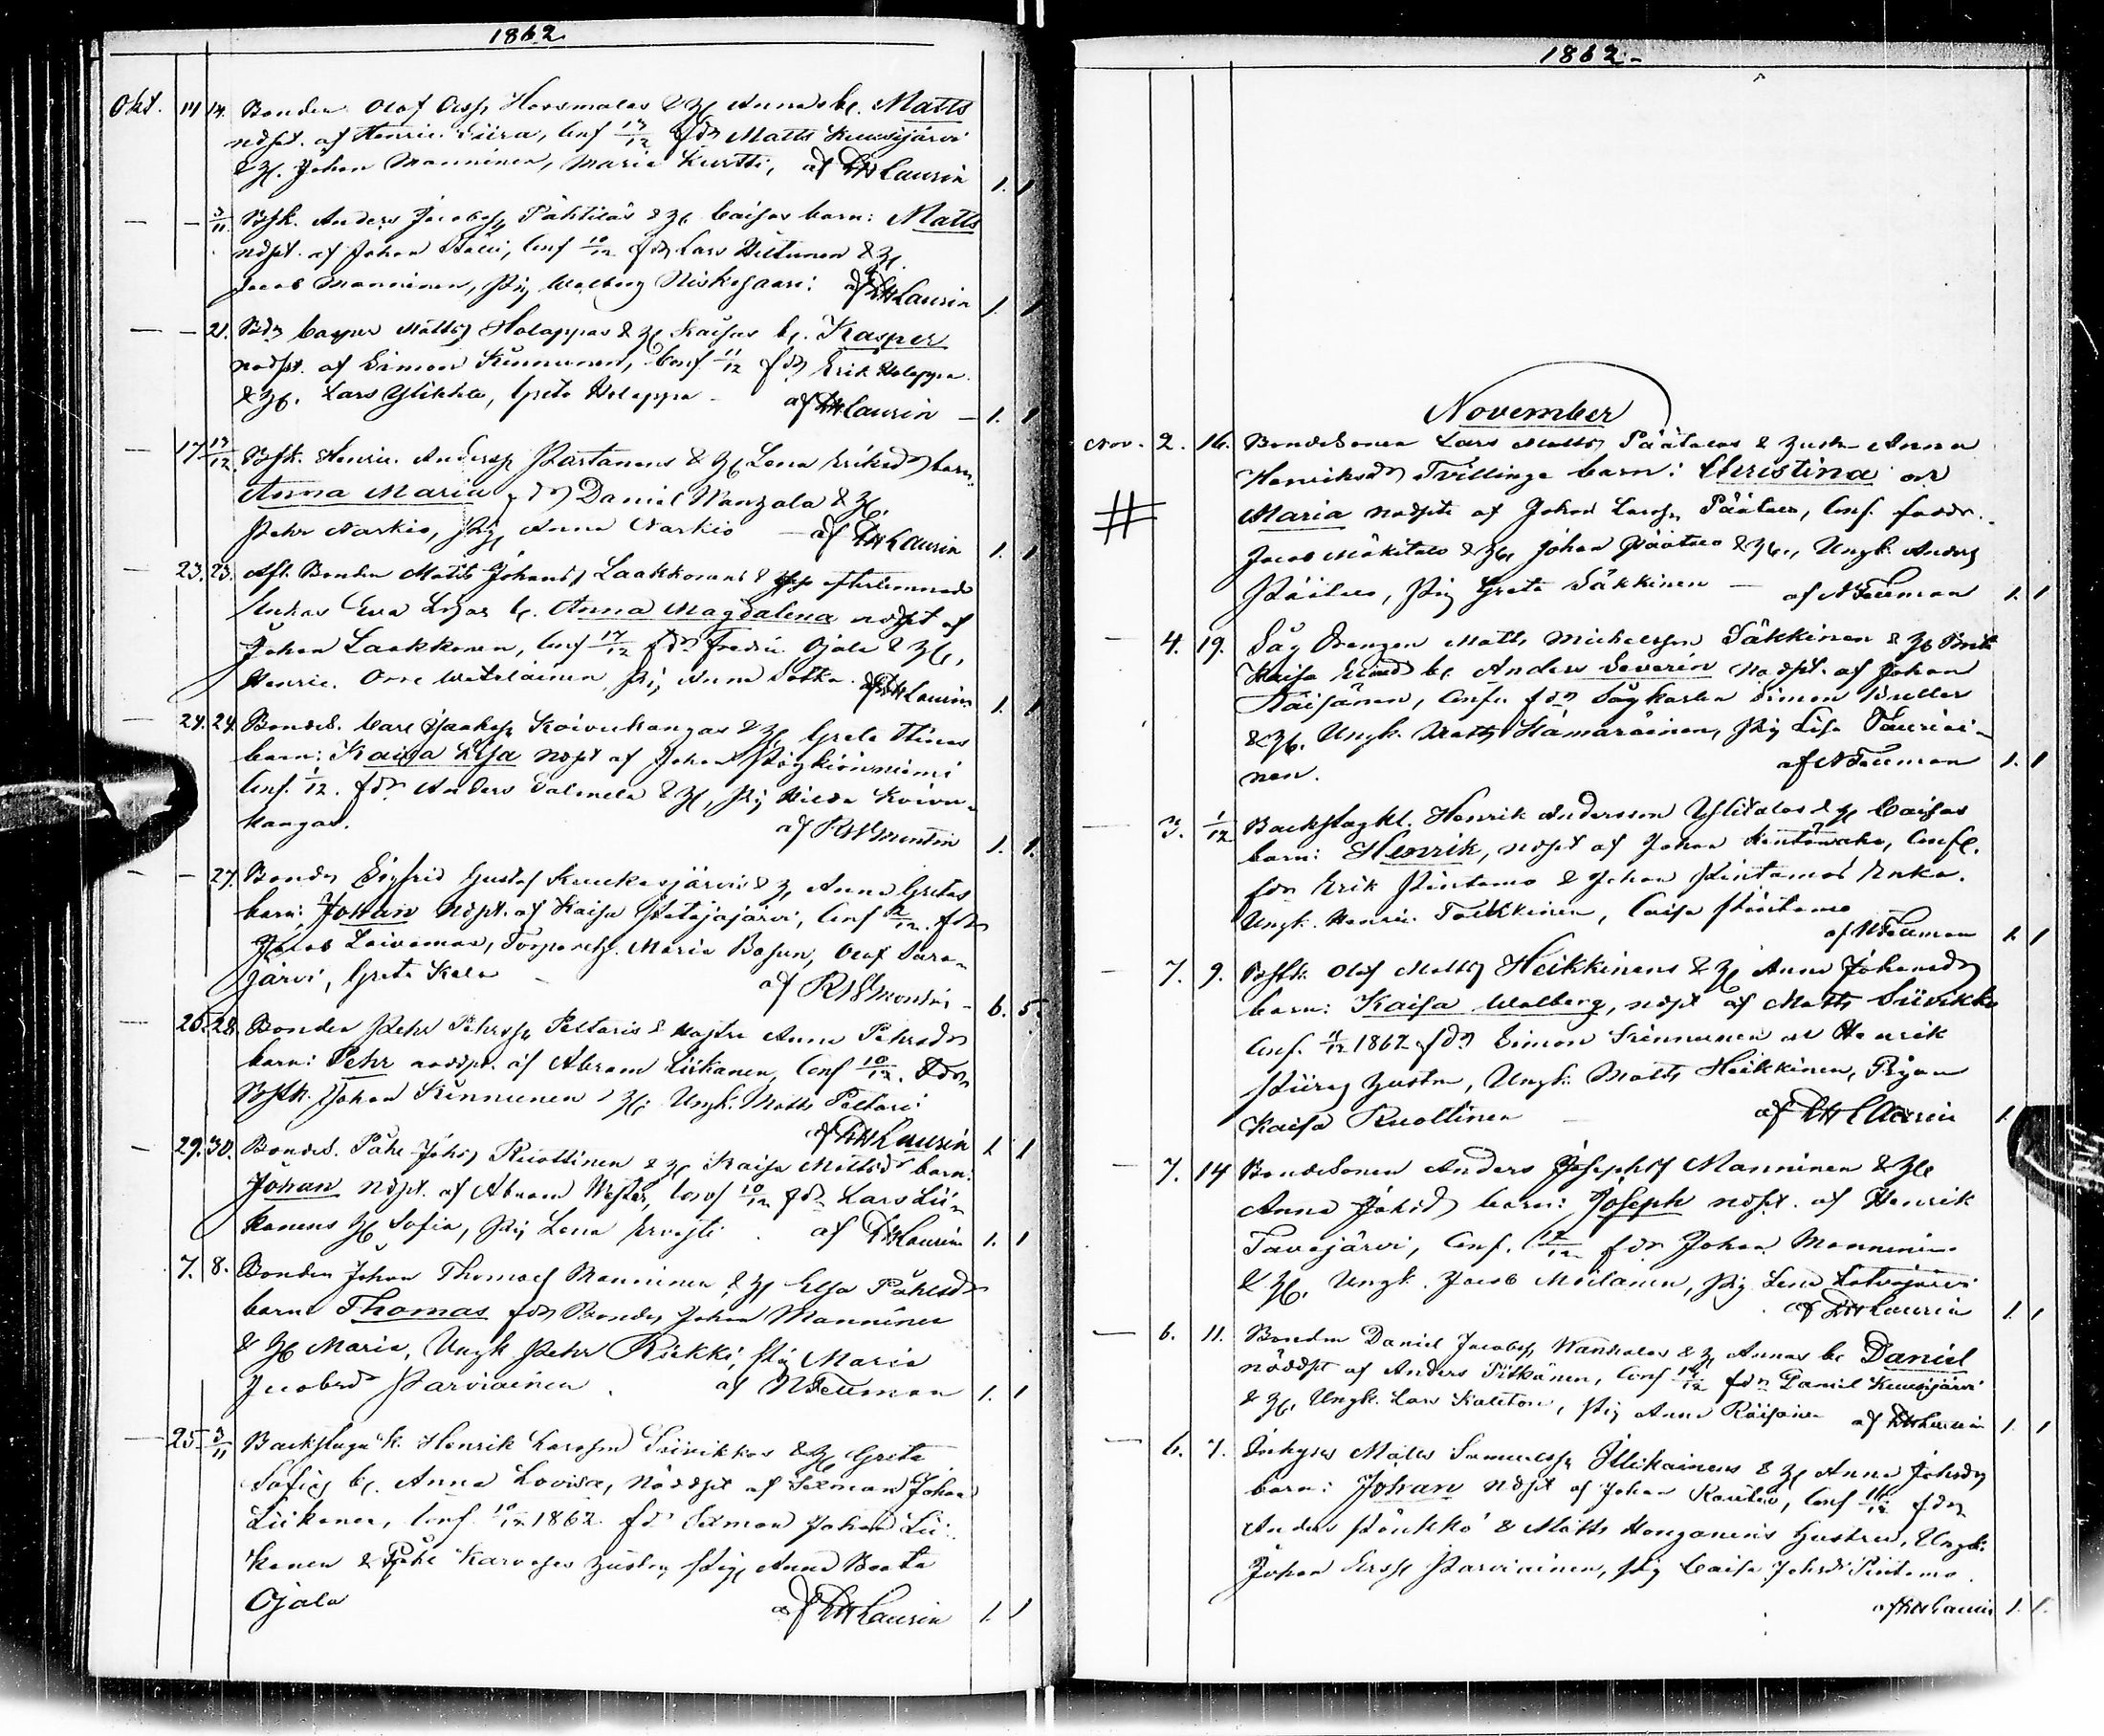 1862
Okt. 14 14. Bonden Olof Hosmalas & H. Annas b. Matts
nödpt. af Henric Piira, Conf 13/12 fdr Matts Kuusijärvi
& H. Johan Manninen, Maria Kurtti, af Laurin 1. 1
— — 3/11 Anders Jacobss. Pähtiläs & H. Caisas barn: Matts
nödpt. af Johan Conf 10/12 fdr Lars Hiltunen & H.
Jacob Manninen, Pig Walborg Niskasaari. af Laurin 1. 1
— — 21. Casper Mattss Holappas & H. Kaisas b. Kasper
nödpt. af Simon Kinnunen, Conf 11/12 fdr Erik Holappa
& H. Lars Ylikhta, Greta Holappa — af Laurin — 1. 1
— 17 17/12. Henric Anderss Partanens & H. Lena Eriksdr barn:
Anna Maria fdr Daniel Wanzala & H.
Pehr Narkio, Pig Anna Narkio — af Laurin 1. 1
— 23. 23. Afl. Bonden Matts Johanss Laakkonens & efterlemnade
Enkas Eva Lisas b. Anna Magdalena nödpt af
Johan Laakkonen, Conf 14/12 fdr Fredric Ojala & H.,
Henric Orre Wetelainen Pig Anna Sotka. af Laurin 1. 1
24. 24. Bondes. Carl Isaakss Koivukangas & H. Greta Stinas
barn: Kaisa Lisa nödpt af Johan
Conf. 1/12. fdr Anders Salmela & H., Pig Hilda Koivu-
kangas. af Montin 1. 1.
— — 27. Bonden Sigfrid Gustaf Kuukasjärvis & H. Anna Gretas
barn: Johan nödpt. af Kaisa Petäjäjärvi, Conf /12. fdr
Jacob Loivamaa, Maria Olof Sara-
järvi, Greta Kela — af Montin — 6. 5.
— 28. 28. Bonden Pehr Pehrss. Peltaris & Hustru Anna Pehrsdr
barn: Pehr nödpt. af Abram Liikanen, Conf 10/12. Fdr
Johan Kinnunen & H. Ungk. Matts Peltari
af Laurin 1 1
— 29. 30. Bondes. Påhl Johss Ruottinen & H. Kaisa Mattsdr barn:
Johan nödpt. af Abram Wester, Conf 10/12 fdr Lars Lii-
kanens H. Sofia, Pig Lena Ervasti. af Laurin 1. 1
7. 8. Bonden Johan Thomass Manninen & H. Elsa Påhlsdr
barn Thomas fdr Bonden Johan Manninen
& H. Maria, Ungk Pehr Riekki, Pig Maria
Jacobsdr Parviainen. af N Fellman 1. 1
— 25. 3/11 Backstuguk. Henrik Larsson Siivikkos & H. Greta
Sofias b. Anna Lovisa, nöddpt af Sexman Johan
Liikanen, Conf. 10/12 1862. fdr Sexman Johan Lii-
kanen & Påhl Karvoses hustru, Pig Anna Beata
Ojala af Laurin 1. 1
1862-
November
Nov. 2. 16. Bondesonen Lars Mattss Päätalos & hustru Anna
Henriksdr Tvillinge barn: Christina och
# Maria nödpta af Johan Larss. Päätalo, Conf. faddr.
Jacob Mäkitalo & H., Johan Päätalo & H., Ungk. Anders
Päätalo, Pig Greta Säkkinen — af N Fellman 1. 1
— 4. 19. Såg Drengen Matts Michelsson Säkkinen & H. Brita
Kaisa b. Anders Severin nödpt. af Johan
Räisänen, Conf. fdr Sågkarlen Simon Kreller
& H. Ungk. Matts Hämäräinen, Pig Lisa Tauriai-
nen. af N Fellman 1. 1
— 3. 1/12 Backstugkl. Henrik Andersson Ylitalos & H. Caisas
barn: Henrik, nödpt af Johan Conf.
fdr Erik Pintamo & Johan Pintamos Enka.
Ungk. Henric Torkkinen, Caisa Pintamo
af N Fellman 1. 1
— 7. 9. Olof Mattss Heikkinens & H. Anna Johansdr
barn: Kaisa Walborg, nödpt af Matts Siivikko
Conf. 11/12 1862 fdr Simon Kinnunen och Henrik
hustru, Ungk. Matts Heikkinen, Pigan
Kaisa Ruottinen af Laurin 1.
— 7. 14 Bondesonen Anders Josephss Manninen & H.
Anna Johsdr barn: Joseph nödpt. af Henrik
Tavajärvi, Conf. 14/12 fdr Johan Manninen
& H. Ungk. Jacob Moilanen, Pig Lena Latvajärvi
af Laurin 1. 1
— 6. 11. Bonden Daniel Jacobss. & H. Annas b. Daniel
nöddpt af Anders Pitkänen, Conf 14/12 fdr Daniel Kuusijärvi
& H. Ungk. Lars Pig Anna Räisänen af Laurin 1 1
— 6. 7. Inhyses Matts Samuelss. Illikainens & H. Anna Johsdr
barn: Johan nödpt af Johan Conf 14/12 fdr
Anders Pönkkö & Matts Honganens hustru, Ungk:
Johan Parviainen, Pig Caisa Johsdr Pintamo.
af Laurin 1. 1.